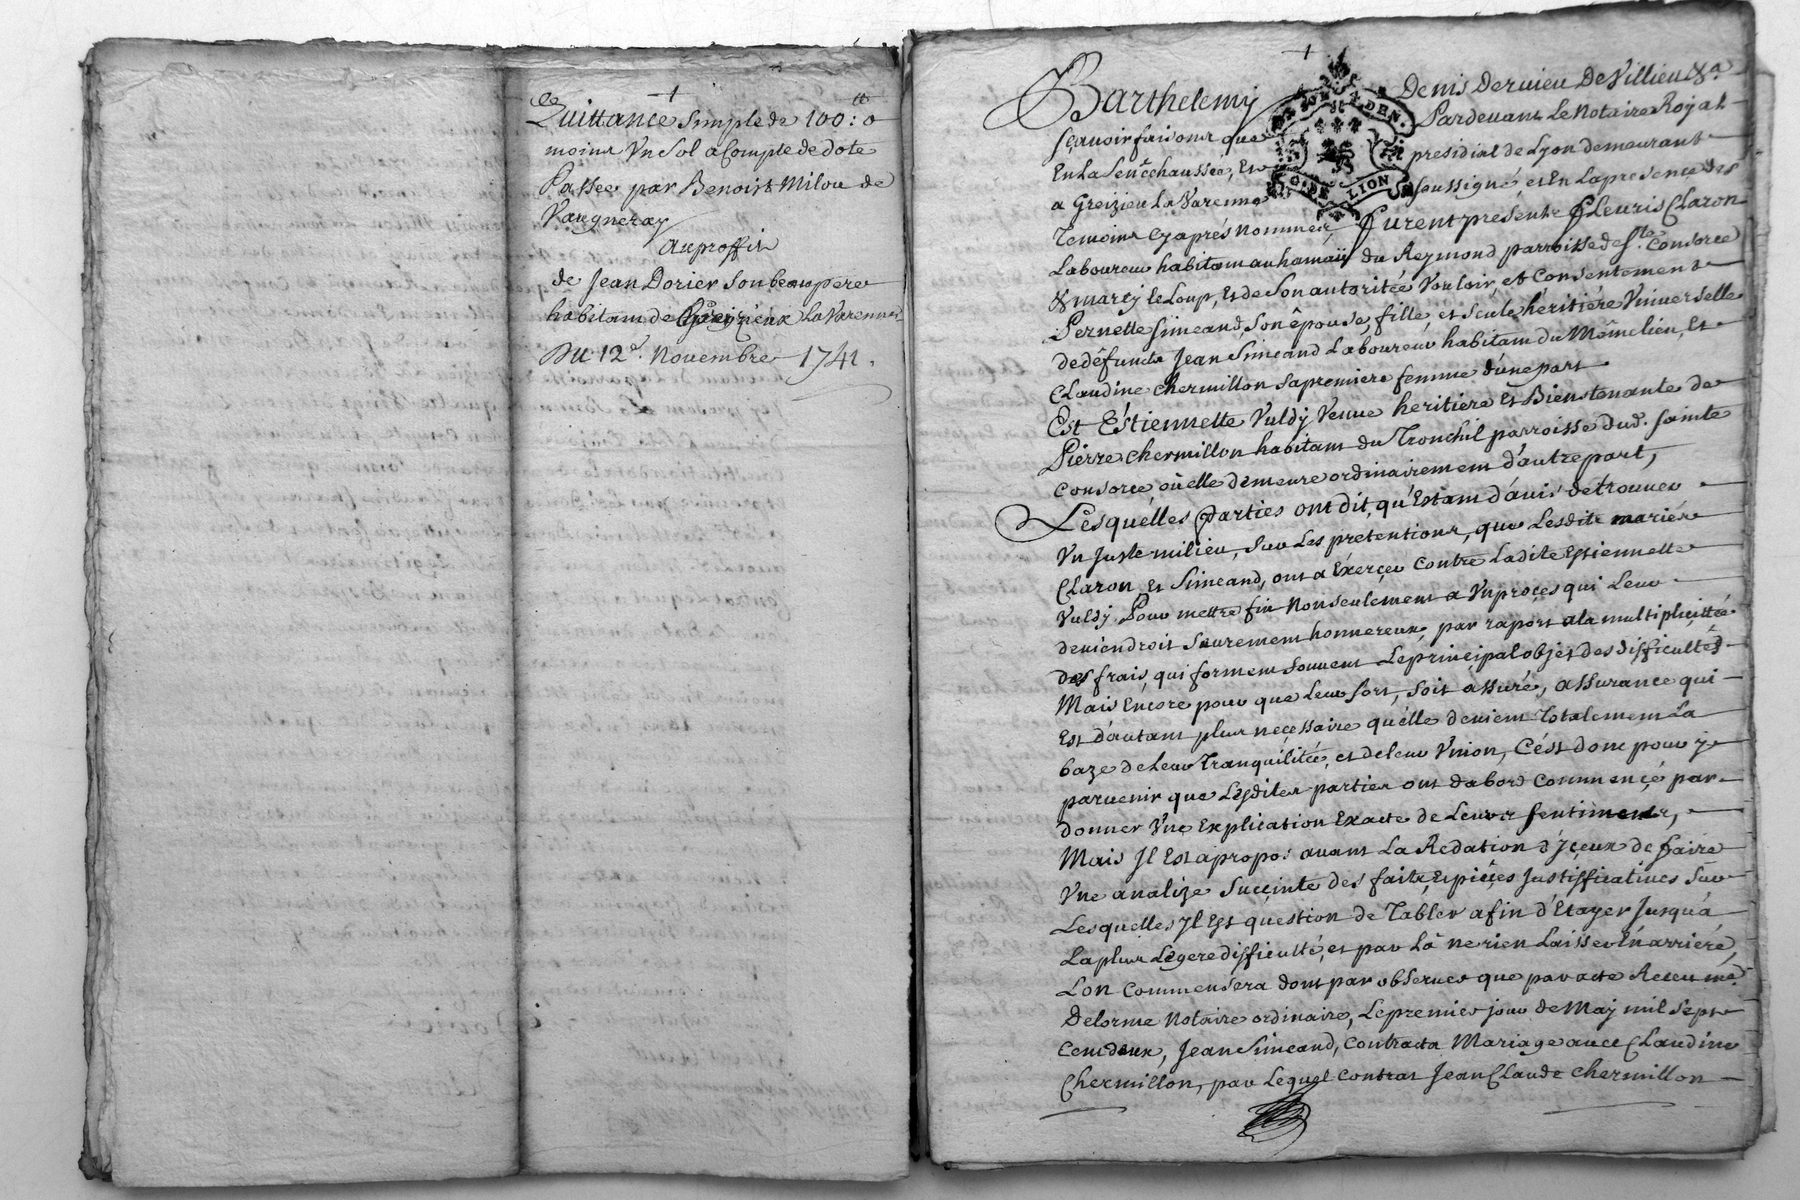 Ce
Quittance simple de 100:0 tt
moins Vn Sol a Compte de dote
Passée par Benoist Milou de
Vaugneray
Au proffit
de Jean Dorier son beau pere
habitant de Greizieux La Varenne
Du 12e. Novembre 1741.
Barthelemy Denis Dervieu De Villieu &a
Sçavoir faisons que Pardevant Le Notaire Royal
En La Senêchaussée, Et presidial de Lyon demeurant
a Greizieu La Varenne soussigné et En La presence des
Temoins Cy aprés Nommez, furent presents Fleuris Claron
Laboureur habitant au hamaii du Reymond parroisse de Ste. Consorce
& marcy le Loup, Et de Son autoritée Vouloir, et Consentement
Pernette Simeand, son épouse, fille, et seule héritiére Vniverselle
de défunts Jean Simeand Laboureur habitant du Mème lieu, Et
Claudine Chermillon sa premiere femme d'une part
Est Éstiennette Vuldy Veuve heritiere Et Bienstenante de
Pierre Chermillon habitant du Tronchil parroisse dud. Sainte
Consorce où elle demeure ordinairement d'autre part,
Lesquélles Parties ont dit, qu'Estant d'avis de trouver
Vn Juste milieu, Sur Les prétentions, que Lesdits mariés
Claron Et Simeand, ont a Éxerçer Contre Ladite Estiennette
Vuldy Pour mettre fin Non seulement a Vn proçes qui Leur
deviendroit Seurement honnereux, par raport a la multipliçitée
des frais, qui forment Souvent Le prinçipal objet des difficultés
Mais Encore pour que Leur Sort, Soit assuré, assurance qui
Est d'autant plus neçessaire qu'élle devient Totalement La
baze de Leur Tranquilitée, et de leur Vnion, C'ést donc pour y
parvenir que Lesdites parties ont d'abord Commençé par
donner Vne Explication Exacte de Leurs Sentiments,
Mais Jl Est apropos avant La Redation d'jçeux de faire
Vne analize Succinte des faits, Et pièçes Justifficatives Sur
Lesquelles Jl Est question de Tabler afin d'Etayer Jusqu'a
La plus Légere difficulté, et par Là ne rien Laisser En arriére,
Lon Commensera dont par observer que par acte Receu me.
Delorme Notaire ordinaire, Le premier jour de May mil Sept
Cent deux, Jean Simeand, Contracta Mariage avec Claudine
Chermillon, par Lequel Contrat Jean Claude Chermillon
GN. DE LION